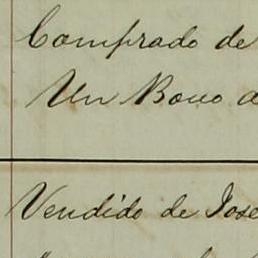 Comprado de
Un Bono d
Vendido de Jose